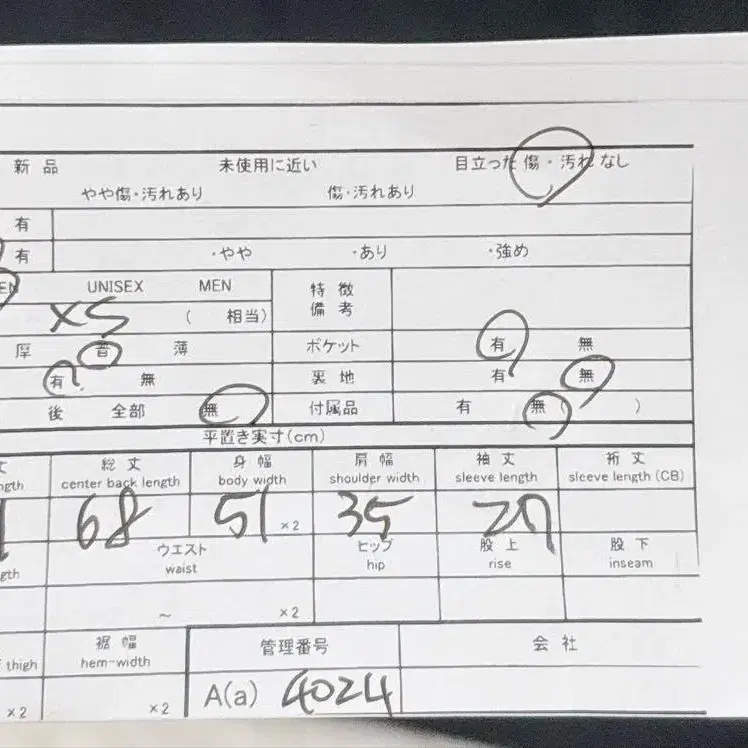 新品 未使用に近い 目立った傷・汚れなし
やや傷・汚れあり 傷・汚れあり
有
有 ・やや ・あり ・強め
EN UNISEX MEN 特徴
備考
XS ( 相当)
厚 普 薄 ポケット 有 無
有 無 裏地 有 無
後 全部 無 付属品 有 無( )
平置き実寸(cm)
丈 総丈 身幅 肩幅 袖丈 裄丈
ngth center back length body width shoulder width sleeve length sleeve length (CB)
68 51 ×2 35
ウエスト ヒップ 股上 股下
gth waist hip rise inseam
~ ×2
裾幅 管理番号 会社
thigh hem-width
×2 ×2 A(a) 4024